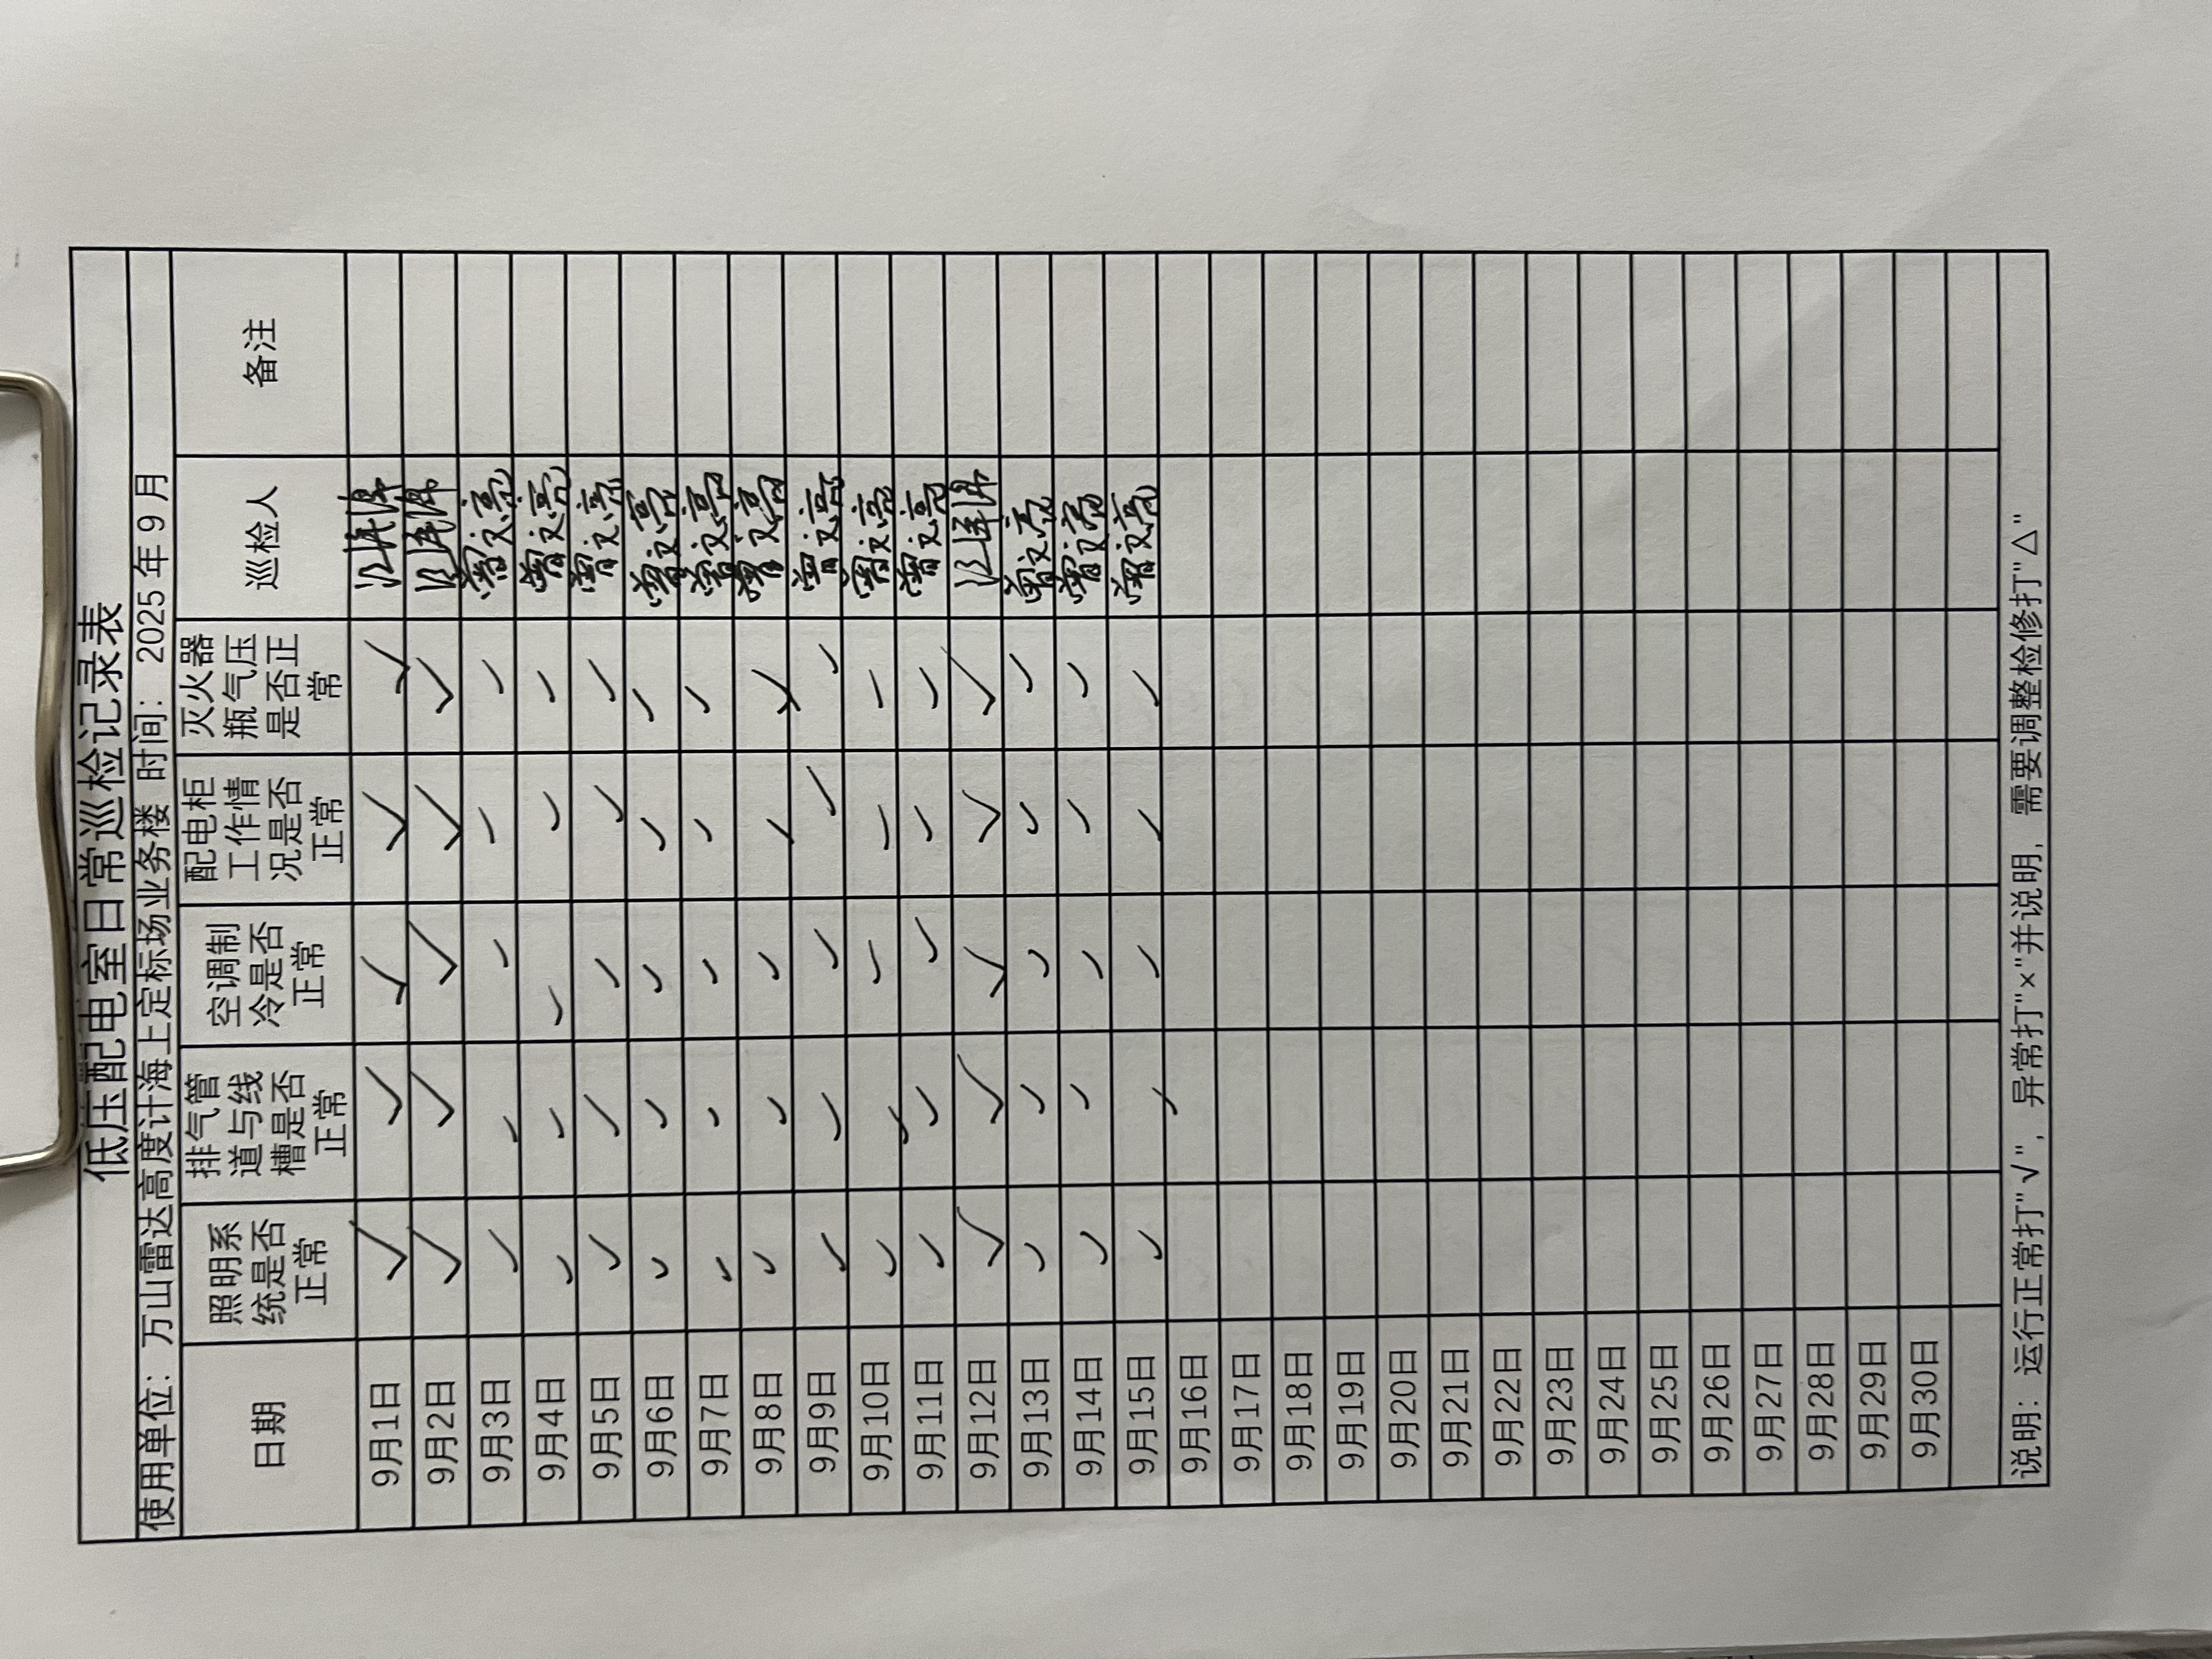 低压配电室日常巡检记录表
使用单位：万山雷达高度计海上定标场业务楼 时间：2025年9月
日期 照明系统是否正常 排气管道与线槽是否正常 空调制冷是否正常 配电柜工作情况是否正常 灭火器瓶气压是否正常 巡检人 备注
9月1日 √ √ √ √ √
9月2日 √ √ √ √ √
9月3日 √ √ √ √ √ 曾文亮
9月4日 √ √ √ √ √ 曾文亮
9月5日 √ √ √ √ √ 曾文亮
9月6日 √ √ √ √ √ 曾文亮
9月7日 √ √ √ √ √ 曾文亮
9月8日 √ √ √ √ √ 曾文亮
9月9日 √ √ √ √ √ 曾文亮
9月10日 √ √ √ √ √ 曾文亮
9月11日 √ √ √ √ √ 曾文亮
9月12日 √ √ √ √ √
9月13日 √ √ √ √ √ 曾文亮
9月14日 √ √ √ √ √ 曾文亮
9月15日 √ √ √ √ √ 曾文亮
9月16日
9月17日
9月18日
9月19日
9月20日
9月21日
9月22日
9月23日
9月24日
9月25日
9月26日
9月27日
9月28日
9月29日
9月30日
说明：运行正常打"√"，异常打"×"并说明，需要调整检修打"△"